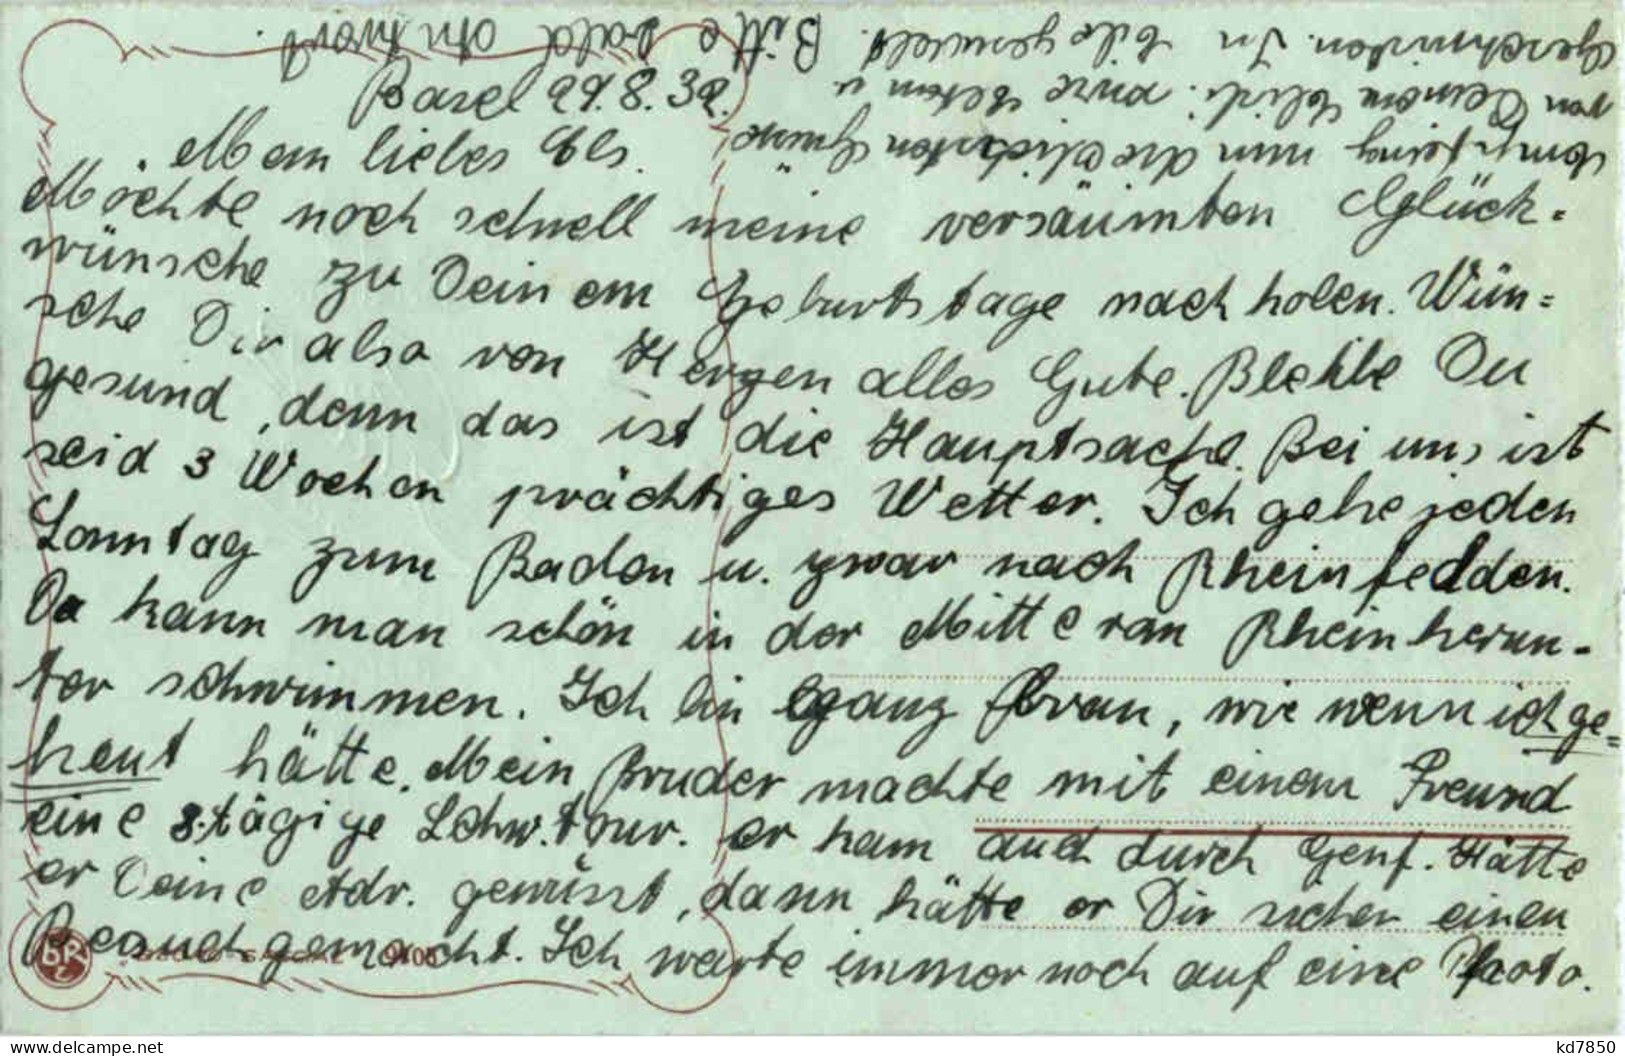 Basel 29.8.32.
Mein liebes Els.
Möchte noch schnell meine versäumten Glück-
wünsche zu Deinem Geburtstage nachholen. Wün-
sche Dir also von Herzen alles Gute. Bleibe Du
gesund, denn das ist die Hauptsache. Bei uns ist
seid 3 Wochen prächtiges Wetter. Ich gehe jeden
Sonntag zum Baden u. zwar nach Rheinfelden.
Da kann man schön in der Mitte vom Rhein herun-
ter schwimmen. Ich bin ganz braun, wie wenn ich ge-
heut hätte. Mein Bruder machte mit einem Freund
eine 8.tägige Schw.tour. er kam auch durch Genf. Hätte
er Deine Adr. gewüsst, dann hätte er Dir sicher einen
Besuch gemacht. Ich warte immer noch auf eine Photo.
Empfang nun die herzlichsten Grüsse
von Deinem Elisi. sowie Eltern u
Geschwister. In Eile gemacht. Bitte bald Antwort.
BR
kd7850